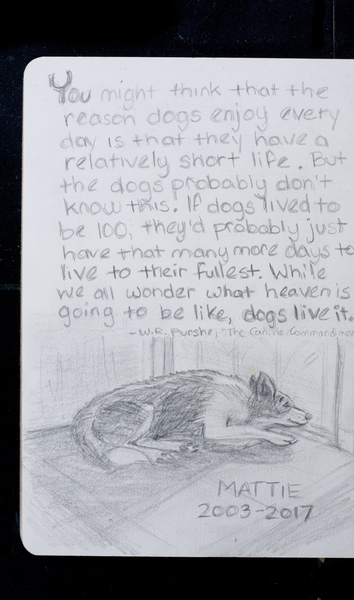 You might think that the
reason dogs enjoy every
day is that they have a
relatively short life. But
the dogs probably don't
know this. If dogs lived to
be 100, they'd probably just
have that many more days to
live to their fullest. While
we all wonder what heaven is
going to be like, dogs live it.
- W.R. Purshe, "The Canine
MATTIE
2003-2017